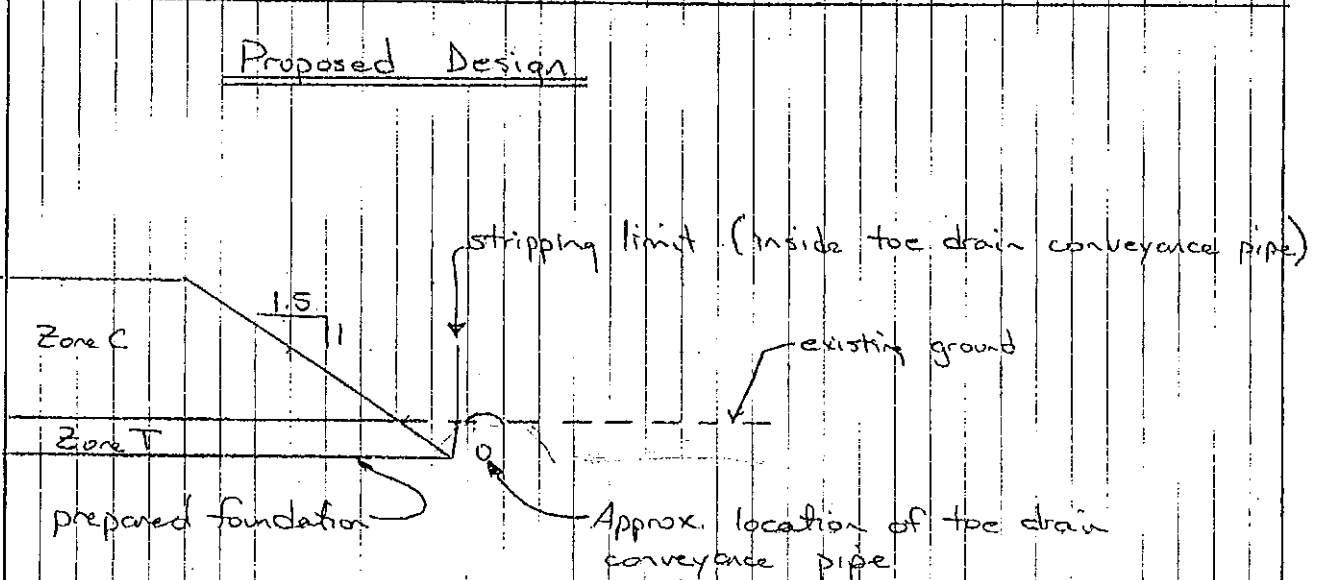 Proposed Design
stripping limit (inside toe drain conveyance pipe)
1.5
1
Zone C
existing ground
Zone T
prepared foundation
Approx. location of toe drain
conveyance pipe